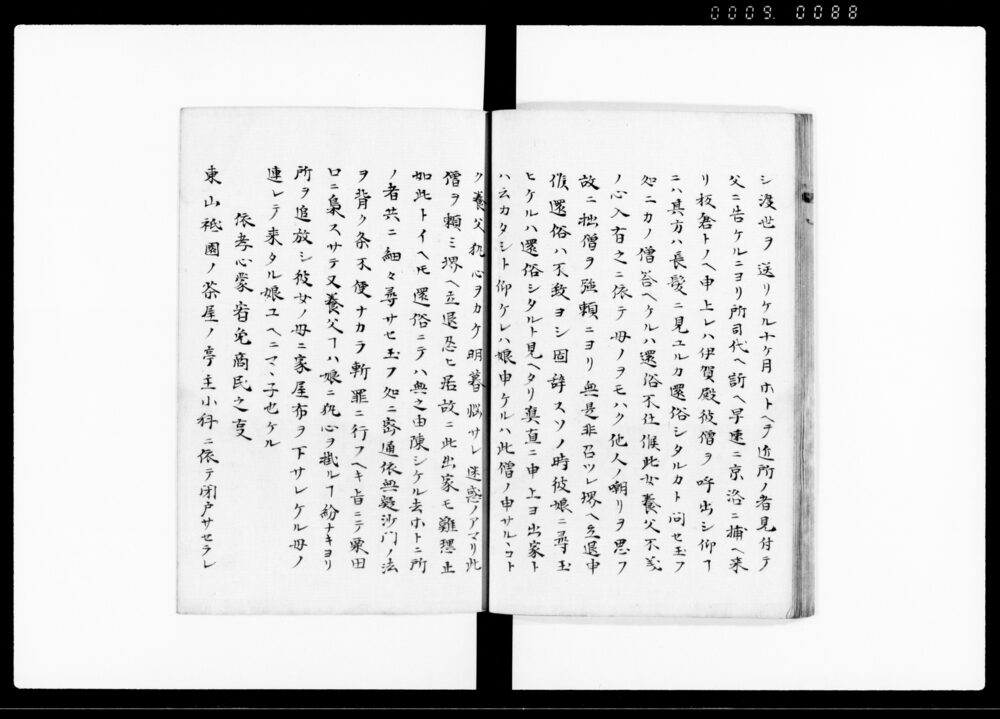 0009. 0088
シ渡世ヲ送リケル十ケ月ホトヘテ近所ノ者見付テ
父ニ告ケルニヨリ所司代ヘ訴ヘ早速ニ京洛ニ捕ヘ来
リ板倉トノヘ申上レハ伊賀殿彼僧ヲ呼出シ仰ケ
ニハ其方ハ長髪ニ見ユルカ還俗シタルカト問セ玉フ
処ニカノ僧答ヘケルハ還俗不仕候此女養父不義
ノ心入有之ニ依テ母ノヲモハク他人ノ嘲リヲ思フ
故ニ拙僧ヲ強頼ニヨリ無是非召ツレ堺ヘ立退申
候還俗ハ不致ヨシ固辞スソノ時彼娘ニ尋玉
ヒケルハ還俗シタルト見ヘタリ真直ニ申上ヨ出家ト
ハ云カタシト仰ケレハ娘申ケルハ此僧ノ申サルヽコト
ク養父執心ヲカケ明暮悩サレ迷惑ノアマリ此
僧ヲ頼ミ堺ヘ立退忍ヒ居故ニ此出家モ難黙止
如此トイヘ𪜈還俗ニテハ無之由陳シケル去ホトニ所
ノ者共ニ細々尋サセ玉フ処ニ密通依無疑沙門ノ法
ヲ背ク条不便ナカラ斬罪ニ行フヘキ旨ニテ粟田
口ニ梟スサテ又養父ヿハ娘ニ執心ヲ掛ルヿ紛ナキヨリ
所ヲ追放シ彼女ノ母ニ家屋布ヲ下サレケル母ノ
連レテ来タル娘ユヘニマヽ子也ケル
依孝心蒙宥免商民之事
東山祗園ノ茶屋ノ亭主小科ニ依テ閉戸サセラレ